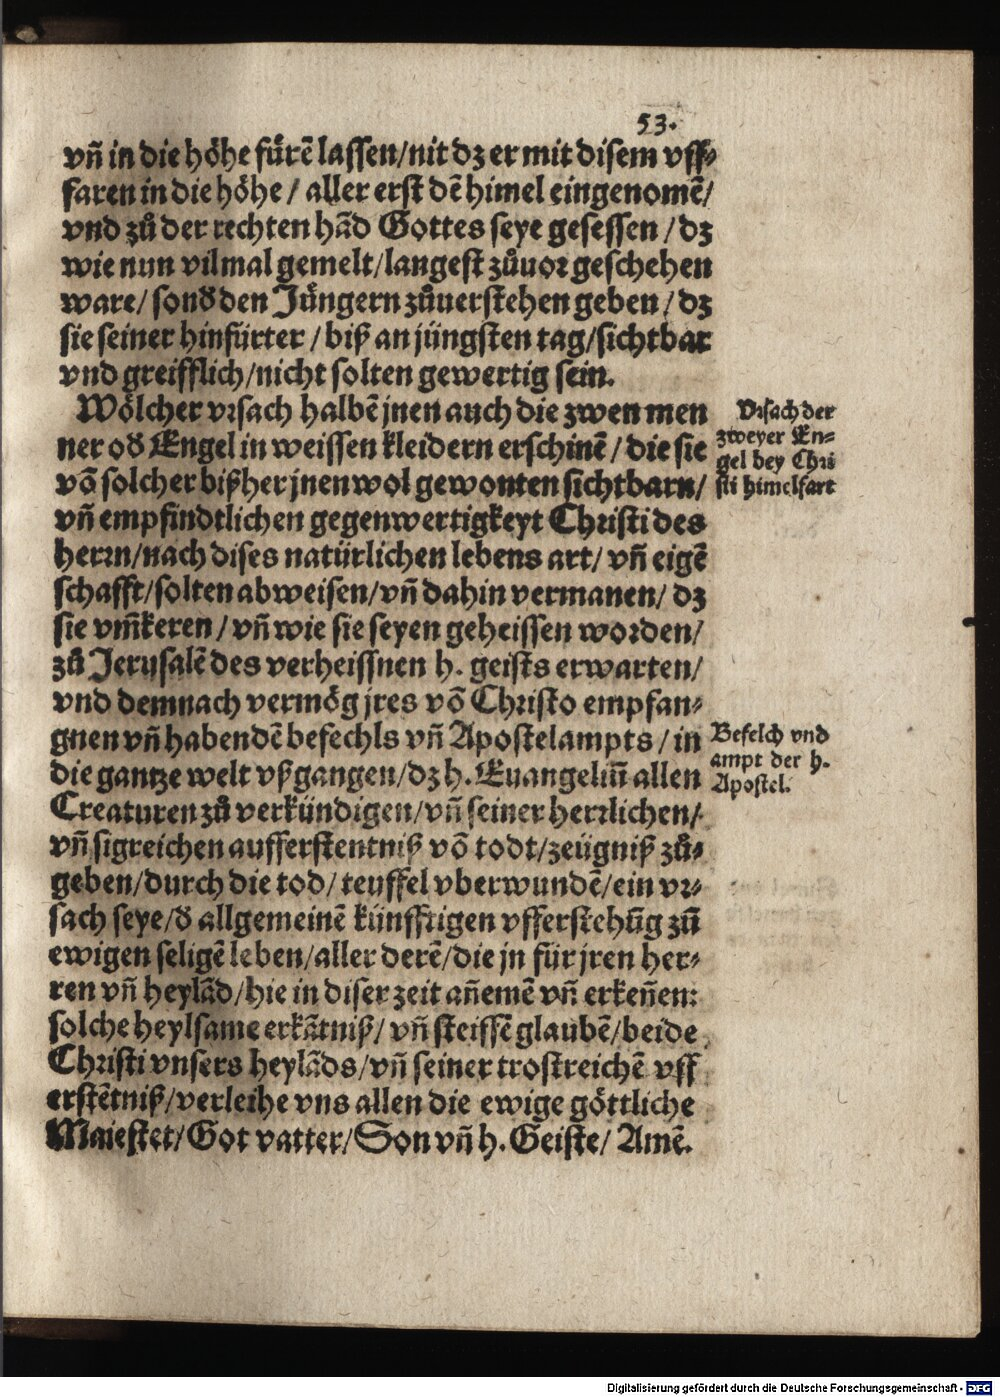 53.
vñ in die höhe fürē lassen/nit dz er mit disem vff⸗
faren in die höhe / aller erst dē himel eingenomē/
vnd zů der rechten hād Gottes seye gesessen / dz
wie nun vilmal gemelt/langest zůuor geschehen
ware/ sonď den Jüngern zůuerstehen geben / dz
sie seiner hinfürter / biß an jüngsten tag/sichtbar
vnd greifflich/nicht solten gewertig sein.
Wölcher vrsach halbē jnen auch die zwen men
ner oď Engel in weissen kleidern erschinē / die sie
vō solcher bißher jnen wol gewonten sichtbarn/
vñ empfindtlichen gegenwertigkeyt Christi des
herrn/nach dises natürlichen lebens art/ vñ eigē
schafft/solten abweisen/vñ dahin vermanen/ dz
sie vm̄keren / vñ wie sie seyen geheissen worden/
zů Jerusalē des verheissnen h. geists erwarten/
vnd demnach vermög jres vō Christo empfan⸗
gnen vñ habendē befechls vñ Apostelampts / in
die gantze welt vßgangen/dz h. Euangeliū allen
Creaturen zů verkündigen/vñ seiner herrlichen/
vñ sigreichen aufferstentniß vō todt/zeügniß zů⸗
geben/durch die tod/ teuffel vberwundē/ein vr⸗
sach seye/ď allgemeinē künfftigen vfferstehūg zū
ewigen seligē leben/aller derē/die jn für jren her⸗
ren vñ heylād/hie in diser zeit añemē vñ erkeñen:
solche heylsame erkātniß/ vñ steiffē glaubē/beide
Christi vnsers heylāds/vñ seiner trostreichē vff
erstētniß/verleihe vns allen die ewige göttliche
Maiestet/Got vatter/Son vñ h. Geiste/ Amē.
Vrsach der
zweyer En⸗
gel bey Chri
sti himelfart
Befelch vnd
ampt der h.
Apostel.
Digitalisierung gefördert durch die Deutsche Forschungsgemeinschaft - DFG